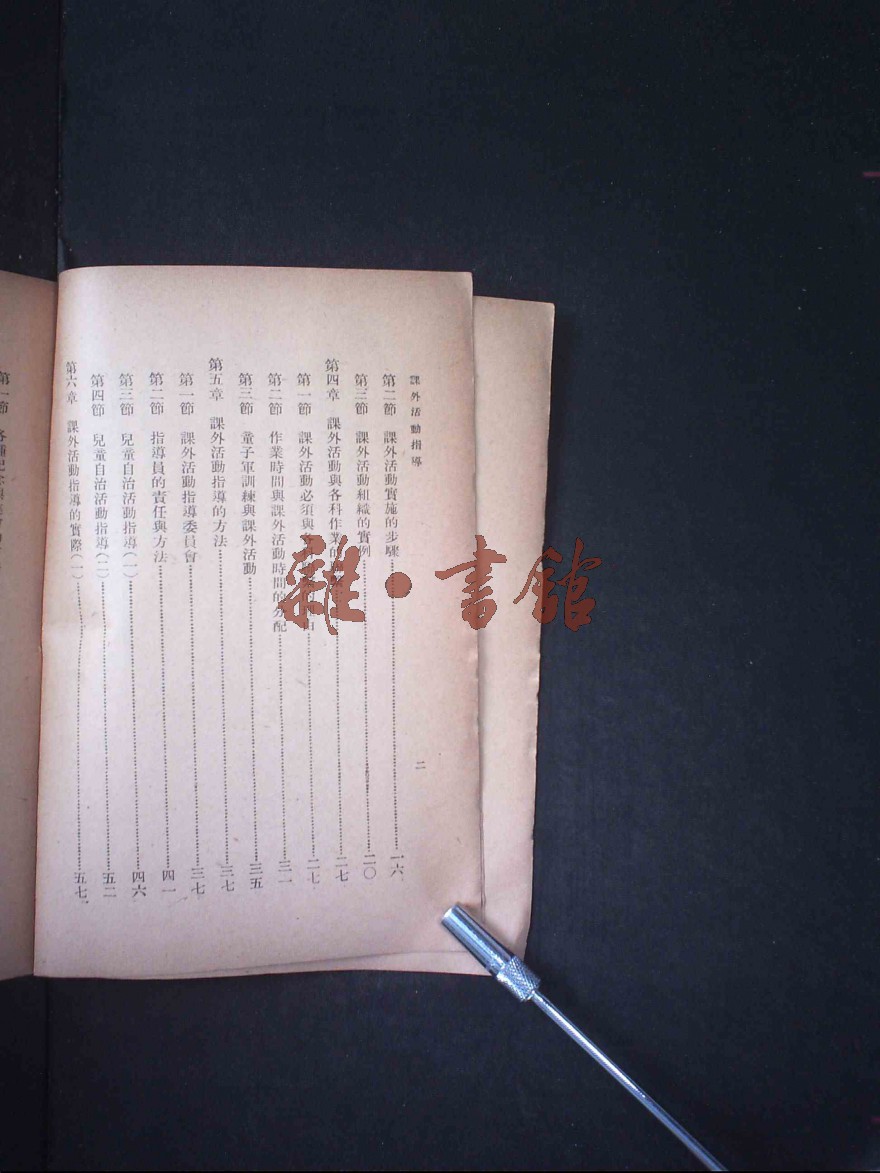 課外活動指導
二
第二節 課外活動實施的步驟 一六
第三節 課外活動組織的實例 二〇
第四章 課外活動與各科作業的 二七
第一節 課外活動必須與 二七
第二節 作業時間與課外活動時間的分配 三一
第三節 童子軍訓練與課外活動 三五
第五章 課外活動指導的方法 三七
第一節 課外活動指導委員會 三七
第二節 指導員的責任與方法 四一
第三節 兒童自治活動指導(一) 四六
第四節 兒童自治活動指導(二) 五二
第六章 課外活動指導的實際(一) 五七
第一節
雜·書館